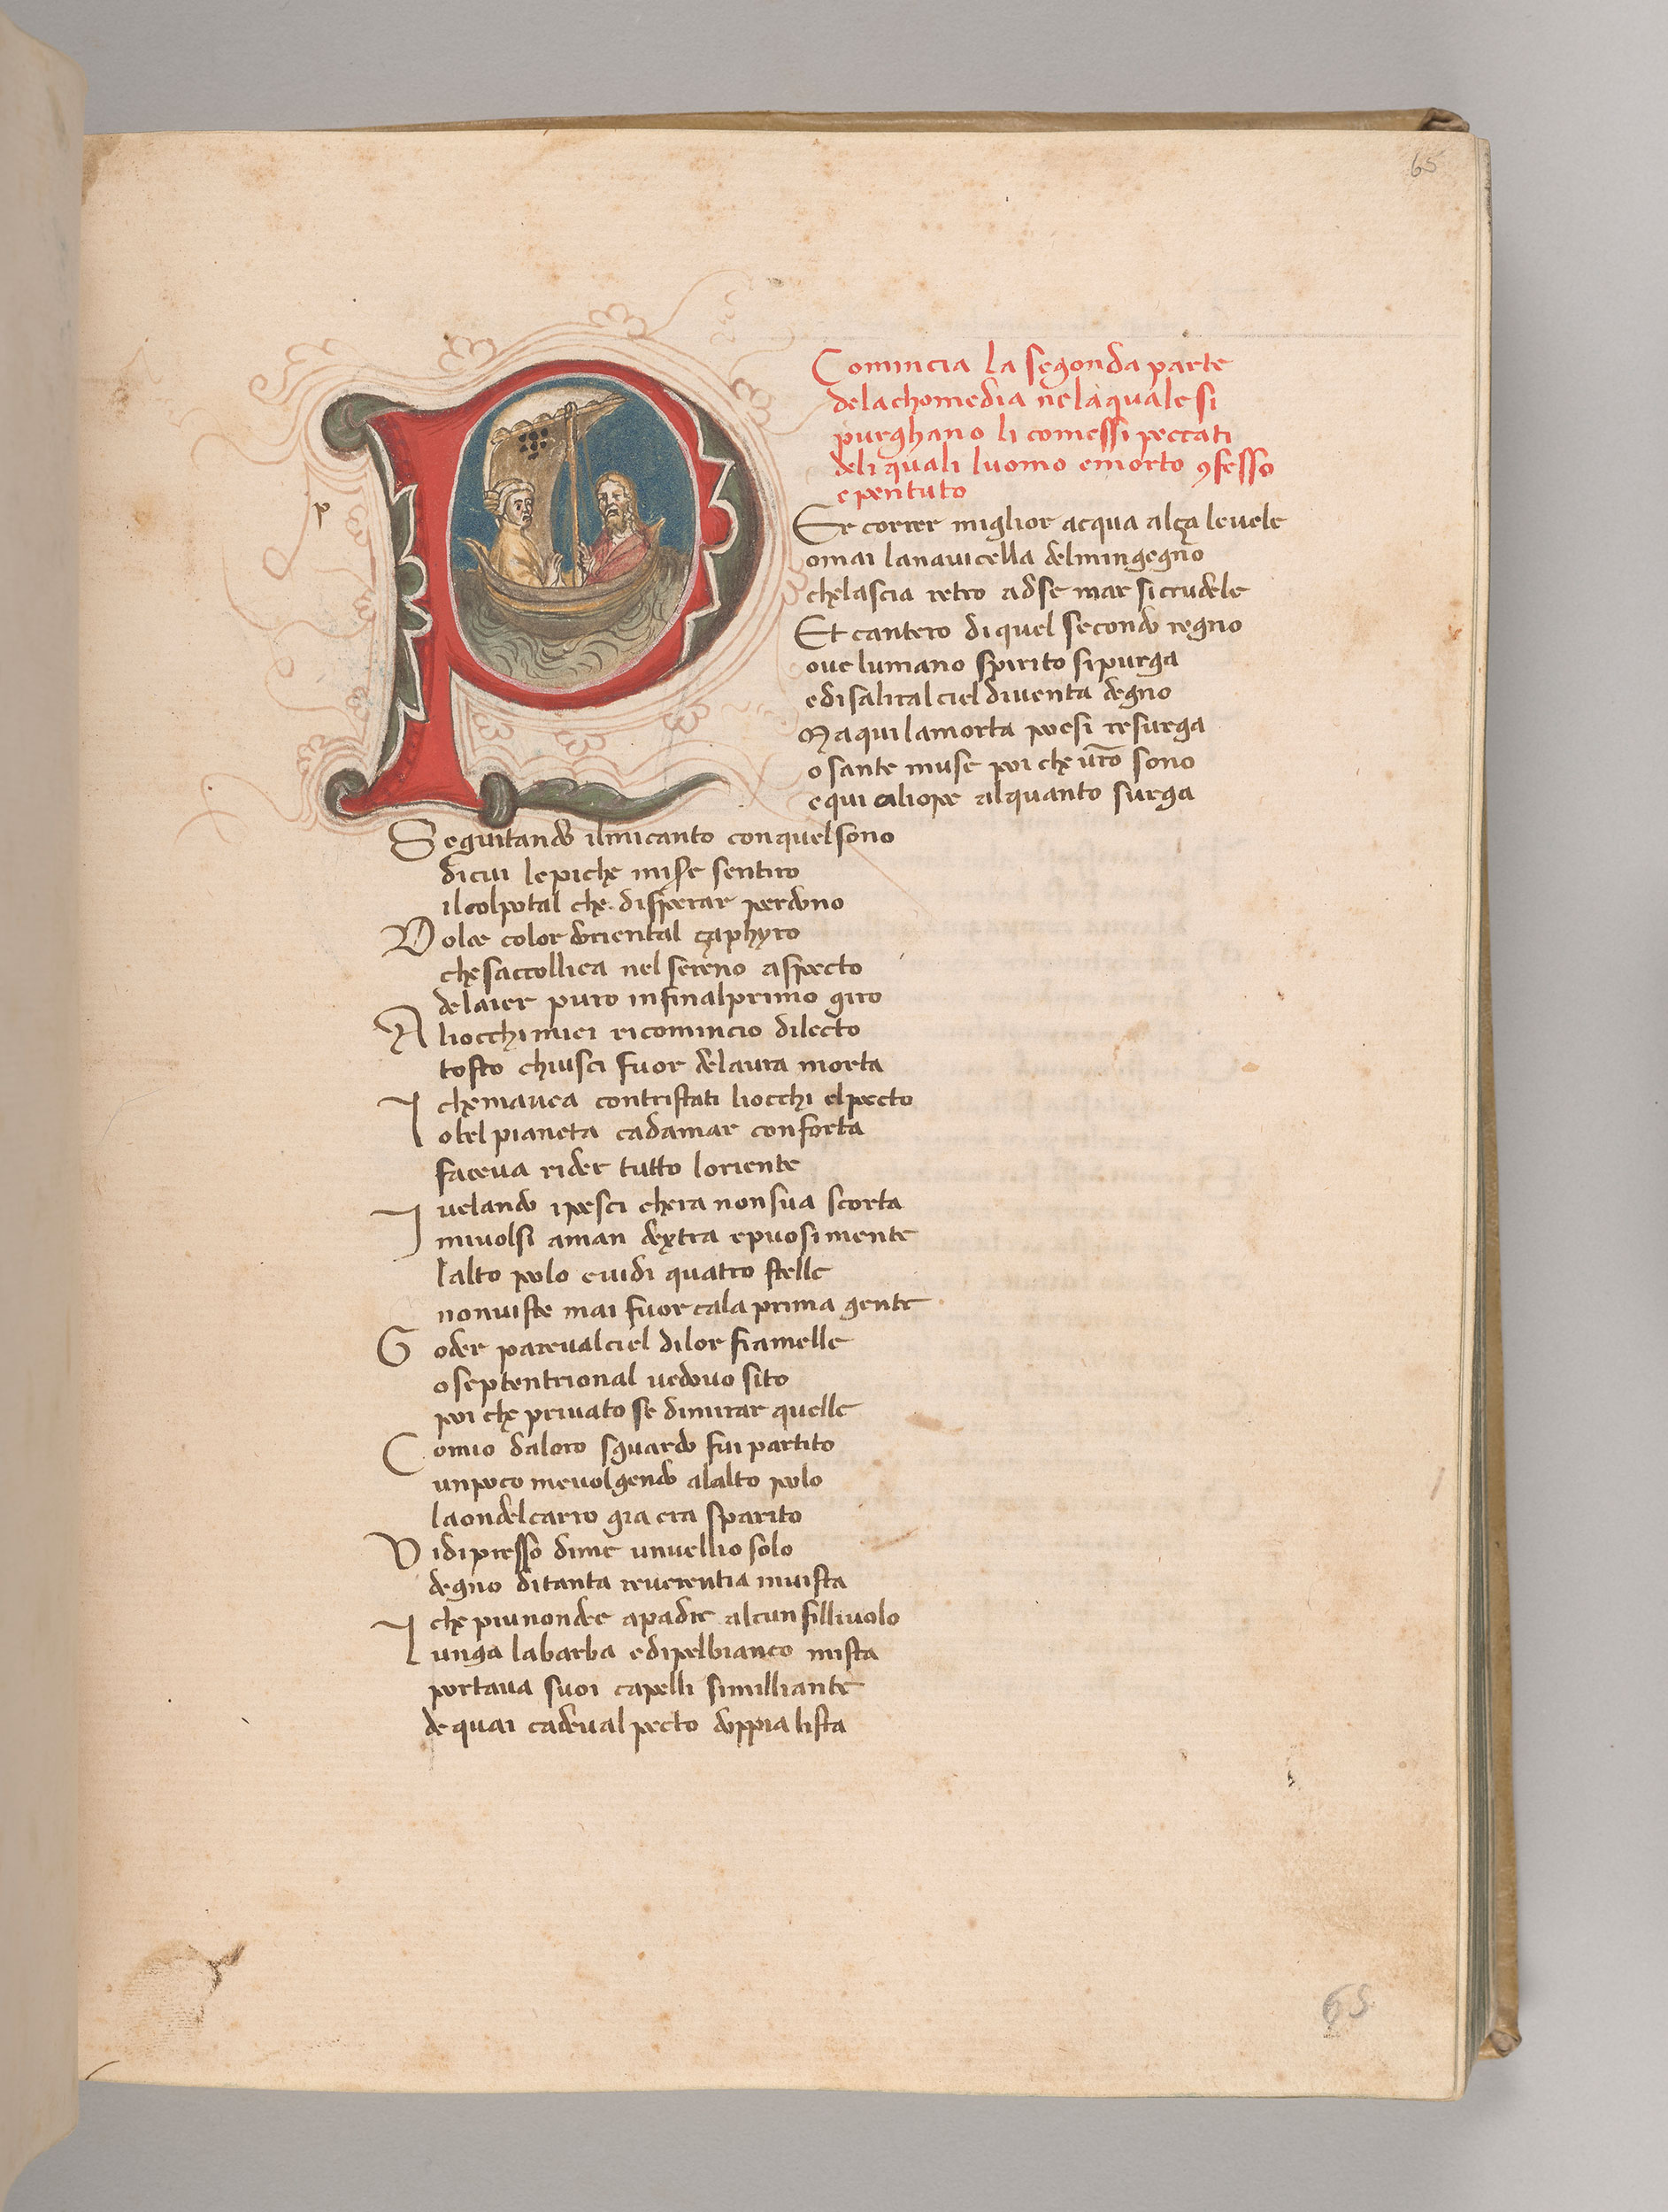 65
Comincia la segonda parte
dela chomedia nela quale si
purghano li comessi peccati
deli quali luomo emorto 9fesso
epentuto
p
P
Er correr miglior acqua alça levele
omai lanavicella delmingegno
chelascia retro adse mar si crudele
Et cantero di quel secondo regno
ove lumano spirito si purga
e di salir al ciel diventa degno
Ma qui lamorta poesi resurga
o sante muse poi che vr̄o sono
e qui caliope alquanto surga
Seguitando ilmi canto con quel sono
di cui le piche mise sentiro
il colpo tal che disperar perdono
Dolce color doriental çaphyro
che saccollica nel sereno aspecto
delaier puro infinal primo giro
A liocchi miei ricomincio dilecto
tosto chiusci fuor delaura morta
che mavea contristati liocchi elpecto
Lo bel pianeta cadamar conforta
faceva rider tutto loriente
velando ipesci chera non sua scorta
I mivolsi aman dextra epuosi mente
lalto polo e vidi quatro stelle
non viste mai fuor cala prima gente
Goder pareval ciel di lor fiamelle
o septentrional vedovo sito
poi che privato se di mirar quelle
Comio daloro sguardo fui partito
un poco me volgendo alalto polo
la ondel carro gia era sparito
Vidi presso dime un vellio solo
degno di tanta reverentia invista
che piu non dee a padre alcun fillivolo
Lunga la barba e di pel bianco mista
portava suoi capelli similliante
de quai cadeval pecto doppia lista
65